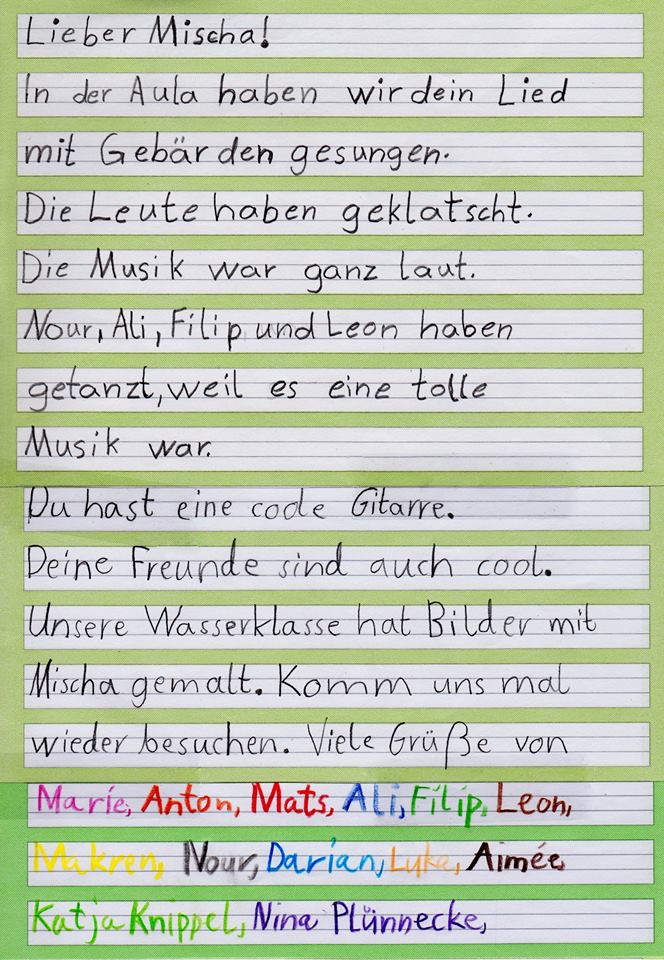 Lieber Mischa!
In der Aula haben wir dein Lied
mit Gebärden gesungen.
Die Leute haben geklatscht.
Die Musik war ganz laut.
Nour, Ali, Filip und Leon haben
getanzt, weil es eine tolle
Musik war.
Du hast eine coole Gitarre.
Deine Freunde sind auch cool.
Unsere Wasserklasse hat Bilder mit
Mischa gemalt. Komm uns mal
wieder besuchen. Viele Grüße von
Marie, Anton, Mats, Ali, Filip, Leon,
Makren, Nour, Darian, Luka, Aimée
Katja Knippel, Nina Plünnecke,